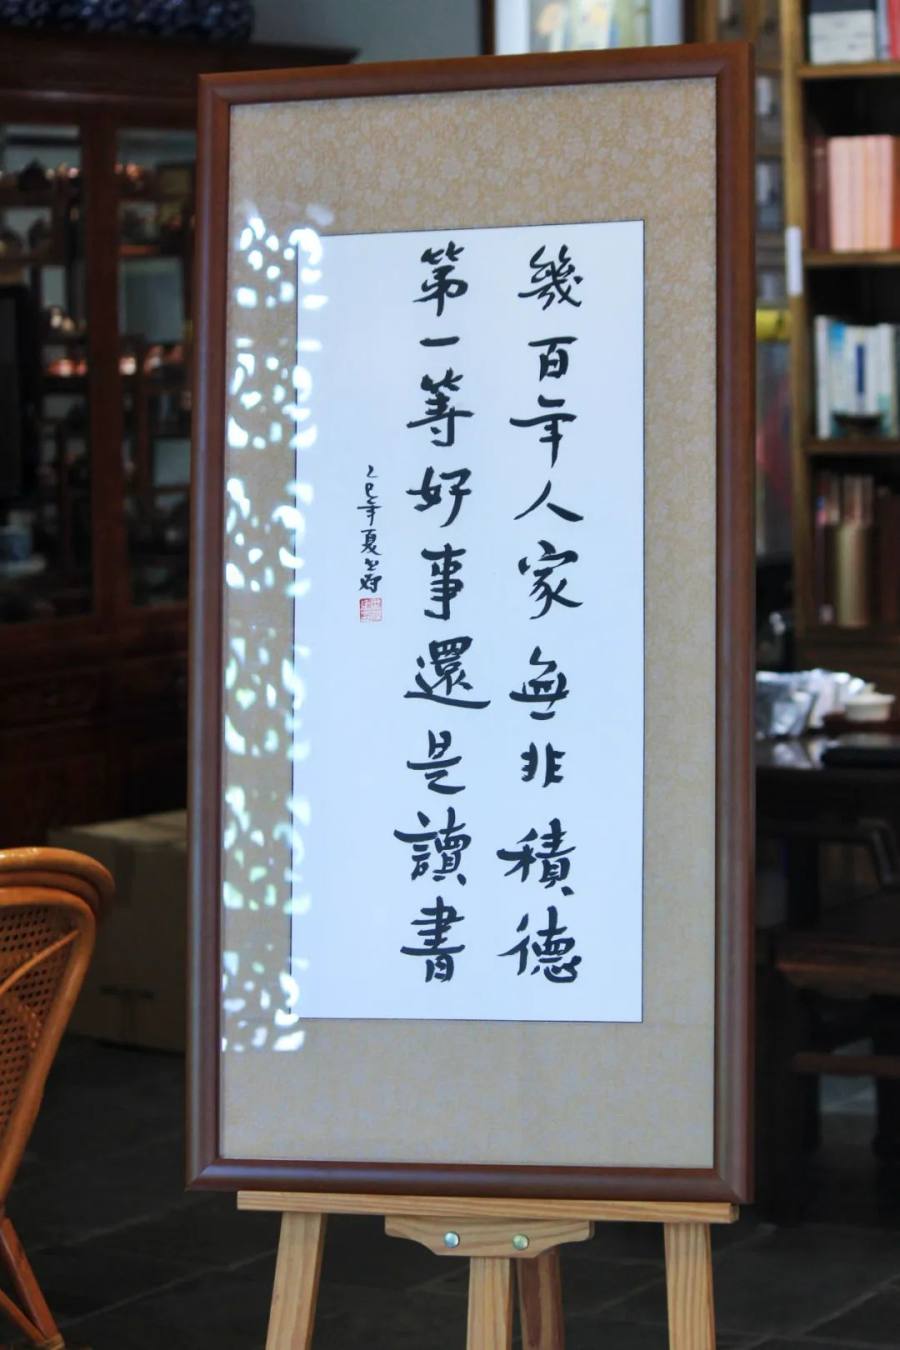 幾百年人家無非積德
第一等好事還是讀書
乙巳年夏